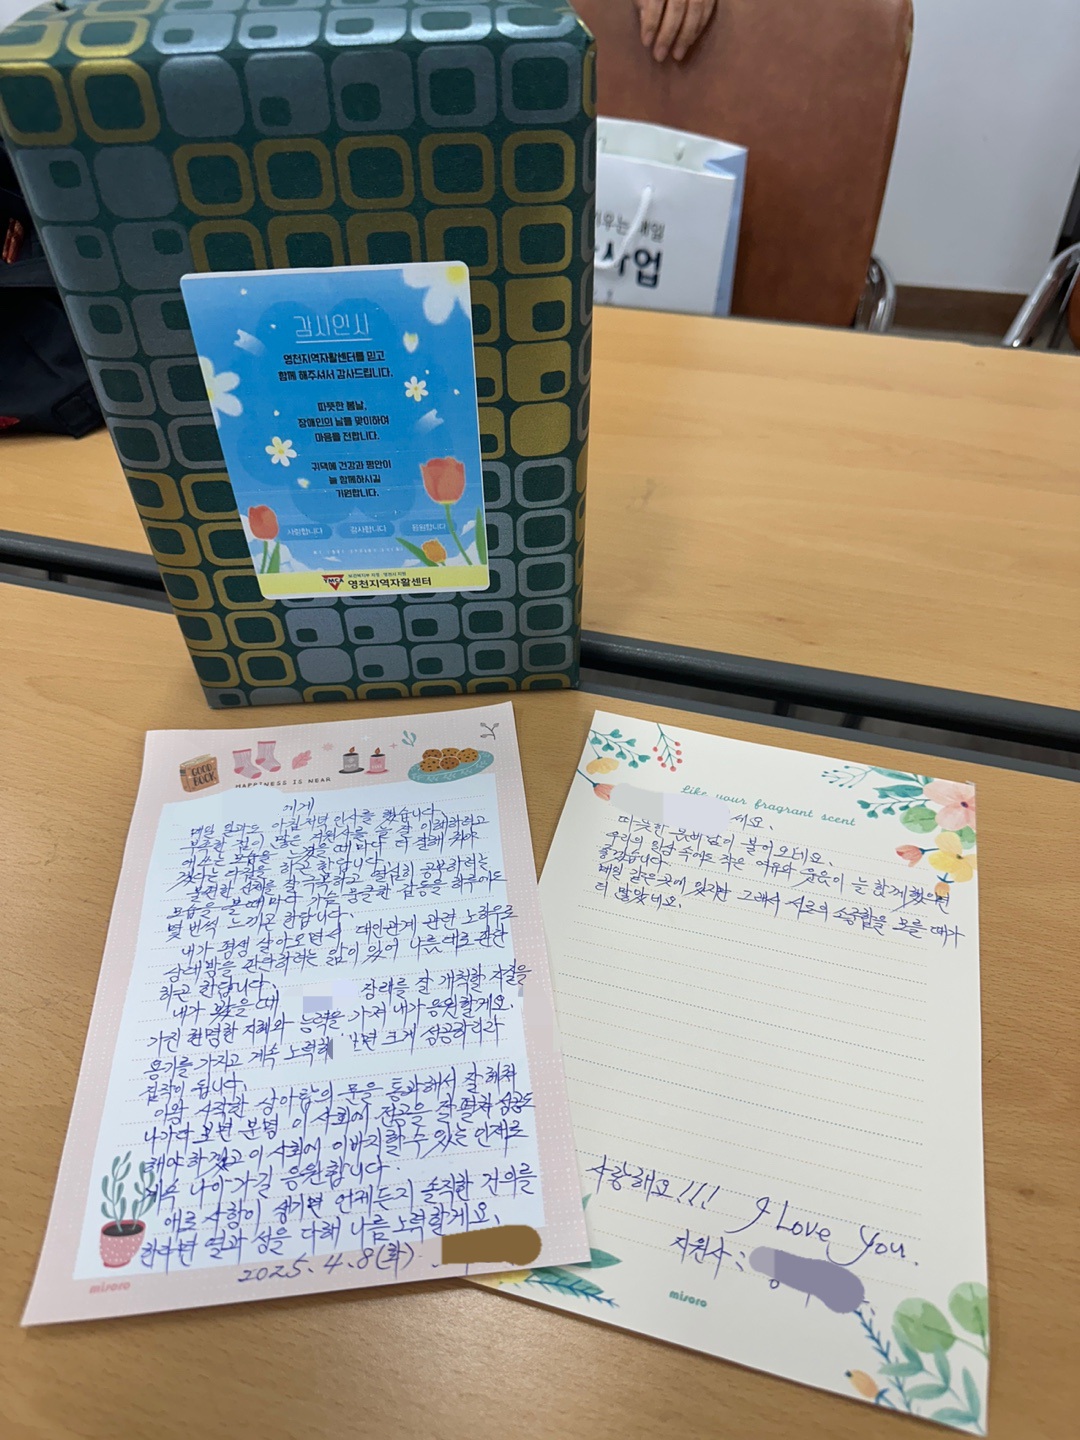 우는 매일
사업
감사인사
영천지역자활센터를 믿고
함께 해주셔서 감사드립니다.
따뜻한 봄날,
장애인의 날을 맞이하여
마음을 전합니다.
귀댁에 건강과 평안이
늘 함께하시길
기원합니다.
사랑합니다 감사합니다 응원합니다
YMCA 보건복지부 지정·영천시 지원
영천지역자활센터
GOOD BOOK
HAPPINESS IS NEAR
에게
매일 일과도 아침저녁 인사를 했습니다
부족한 점이 많은 지원사를 늘 잘 이해하려고
애쓰는 모습을 느꼈을 때마다 더 잘해 줘야
겠다는 다짐을 하곤 한답니다.
불편한 신체를 잘 극복하고 열심히 공부하려는
모습을 볼 때마다 가슴 뭉클한 감동을 하루에도
몇 번씩 느끼곤 한답니다.
내가 평생 살아오면서 대인관계 관련 노하우로
상대방을 판단하려는 앎이 있어 나름대로 판단
하곤 한답니다.
내가 봤을 때 장래를 잘 개척할 자질을
가진 현명한 지혜와 능력을 가져 내가 응원할게요.
용기를 가지고 계속 노력해 면 크게 성공하리라
짐작이 됩니다.
이왕 시작한 상아탑의 문을 통과해서 잘 헤쳐
나가다 보면 분명 이 사회에 전공을 잘 펼쳐 성공도
해야 하겠고 이 사회에 이바지할 수 있는 인재로
계속 나아가길 응원합니다.
애로 사항이 생기면 언제든지 솔직한 건의를
한다면 열과 성을 다해 나름 노력할게요.
2025. 4. 8(화).
misoro
Like your fragrant scent
세요.
따뜻한 봄바람이 불어오네요.
우리의 일상 속에도 작은 여유와 웃음이 늘 함께 했으면
좋겠습니다.
매일 같은 곳에 있지만 그래서 서로의 소중함을 모를 때가
더 많았네요.
사랑해요!!! I Love You.
지원사 :
misoro